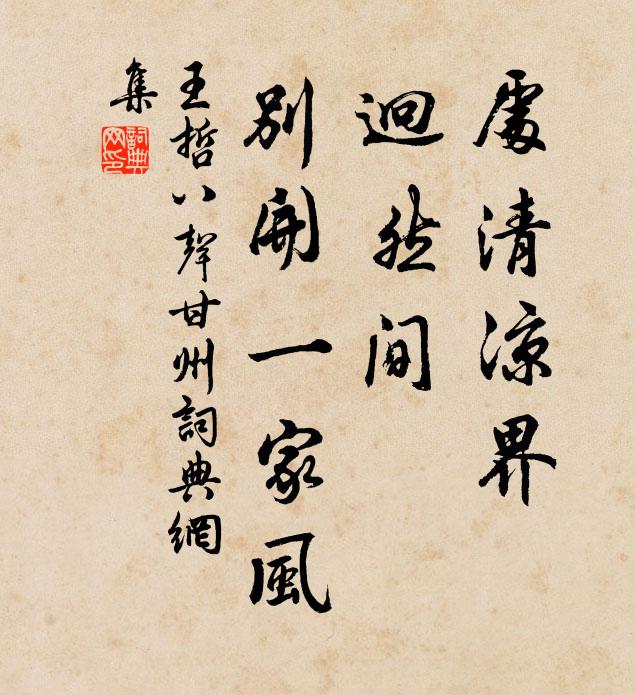 處清凉界
迥然間
別開一家風
王哲八聲甘州詞典網
集
詞典
网印